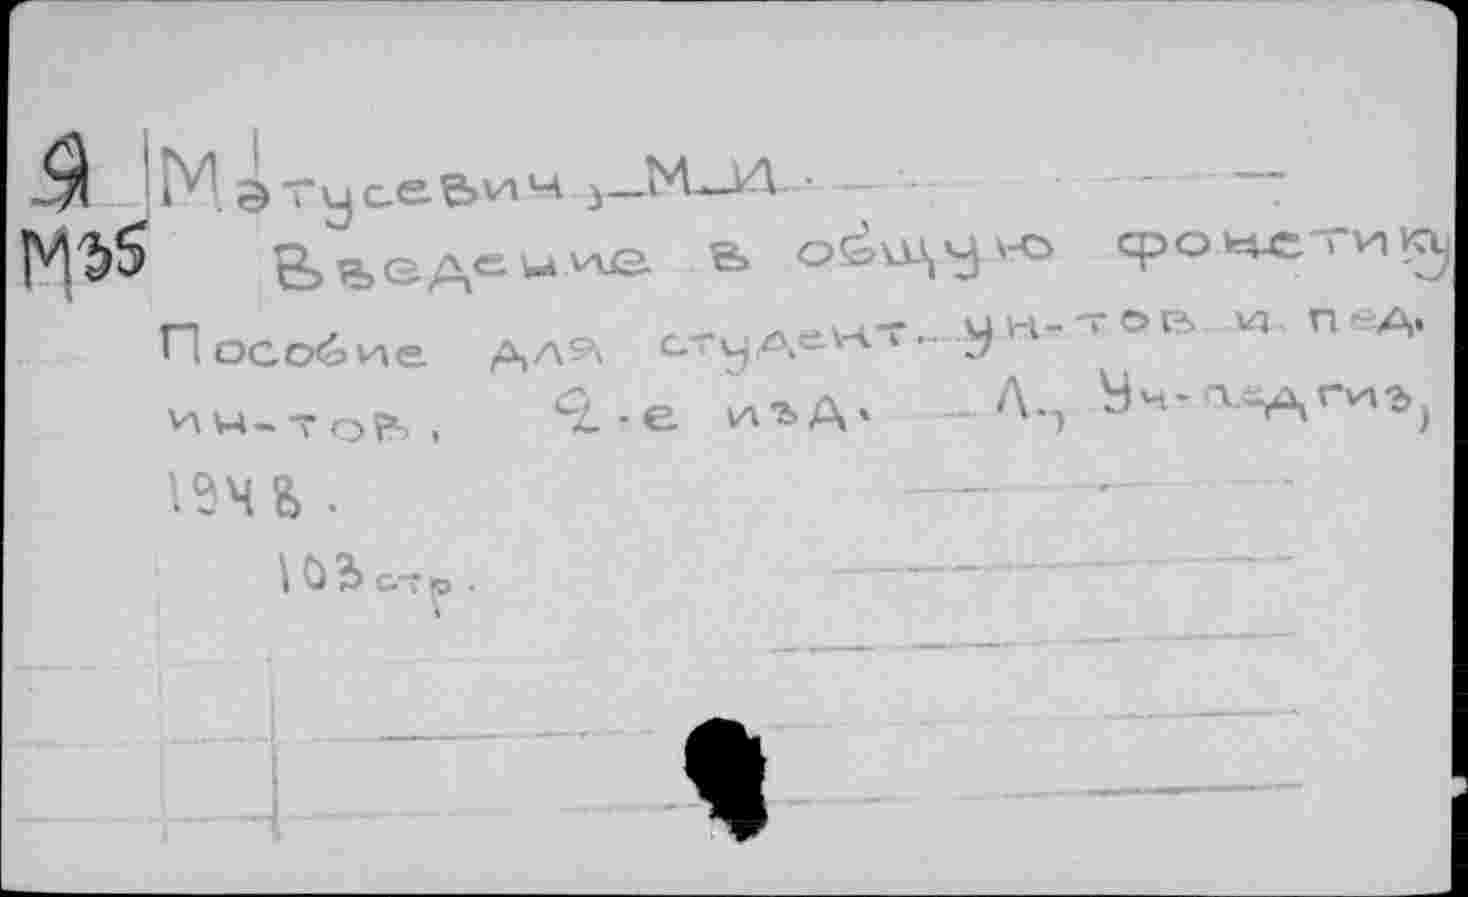 Я Матусевич, М.И.
М35 Введение в общую фонетику
Пособие для студент. ун-тов и пед.
ин-тов, 2-е изд. Л., Уч-педгиз,
1948.
103 стр.